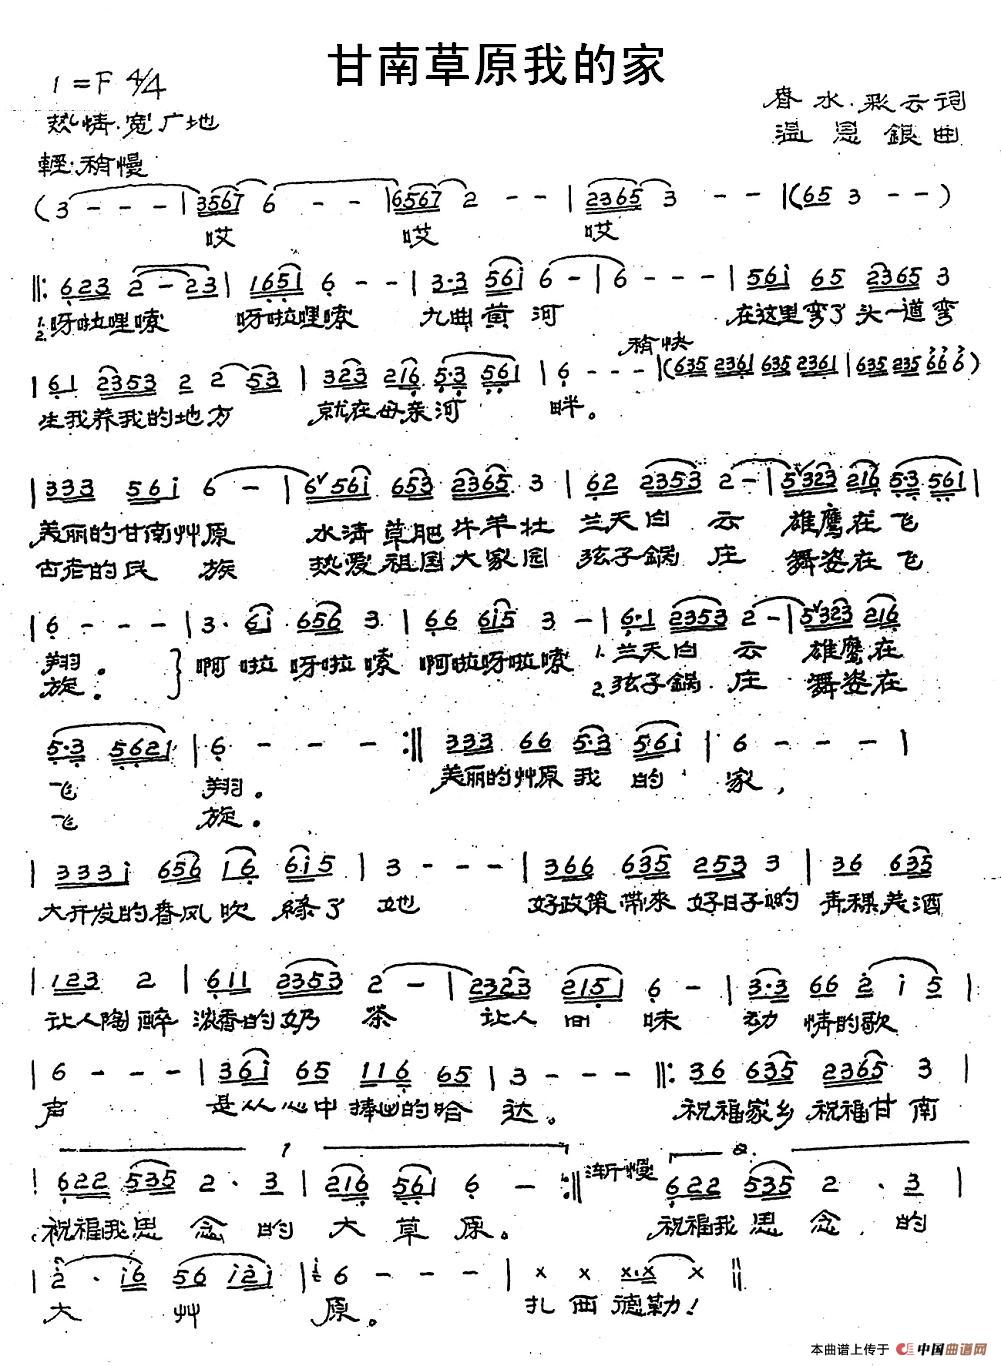 甘南草原我的家
1=F 4/4
春水·彩云词
热情·宽广地
温恩銀曲
輕·稍慢
(3 - - - | 3567 6 - - | 6567 2 - - | 2365 3 - - | (65 3 - - )
哎 哎 哎
‖: 623 2 - 23 | 1651 6 - - | 3·3 561 6 - | 6 - - - | 561 65 2365 3
1.2. 呀啦哩嗦 呀啦哩嗦 九曲黄河 在这里弯了头一道弯
稍快
| 61 2353 2 2 53 | 323 216 5·3 561 | 6 - - - | (635 2361 635 2361 | 635 235 66 6 )
生我养我的地方 就在母亲河 畔。
| 333 561 6 - | 6561 653 2365 3 | 62 2353 2 - | 5323 216 5·3 561 |
美丽的甘南艸原 水清草肥牛羊壮 兰天白云 雄鹰在飞
古老的民族 热爱祖国大家园 弦子锅庄 舞姿在飞
| 6 - - - | 3· 61 656 3 | 66 615 3 - | 6·1 2353 2 - | 5323 216
翔。 啊啦呀啦嗦 啊啦呀啦嗦 1.兰天白云 雄鹰在
旋。 2.弦子锅庄 舞姿在
5·3 5621 | 6 - - - :‖ 333 66 5·3 561 | 6 - - - |
飞 翔。 美丽的艸原我的家,
飞 旋。
| 3331 656 16 615 | 3 - - - | 366 635 253 3 | 36 635
大开发的春风吹綠了她 好政策带來好日子哟 青稞美酒
| 123 2 | 611 2353 2 - | 2323 215 6 - | 3·3 66 2 1 5 |
让人陶醉 浓香的奶茶 让人回味 动情的歌
| 6 - - - | 361 65 116 65 | 3 - - - ‖: 36 635 2365 3 |
声 是从心中捧出的哈达。 祝福家乡祝福甘南
1 渐慢 2
| 622 535 2· 3 | 216 561 6 - :‖ 622 535 2 · 3 |
祝福我思念的大草原。 祝福我思念的
| 2· 16 56 121 | 6 - - - | x x x·x x ‖
大艸原。 扎西德勒!
本曲谱上传于 中国曲谱网